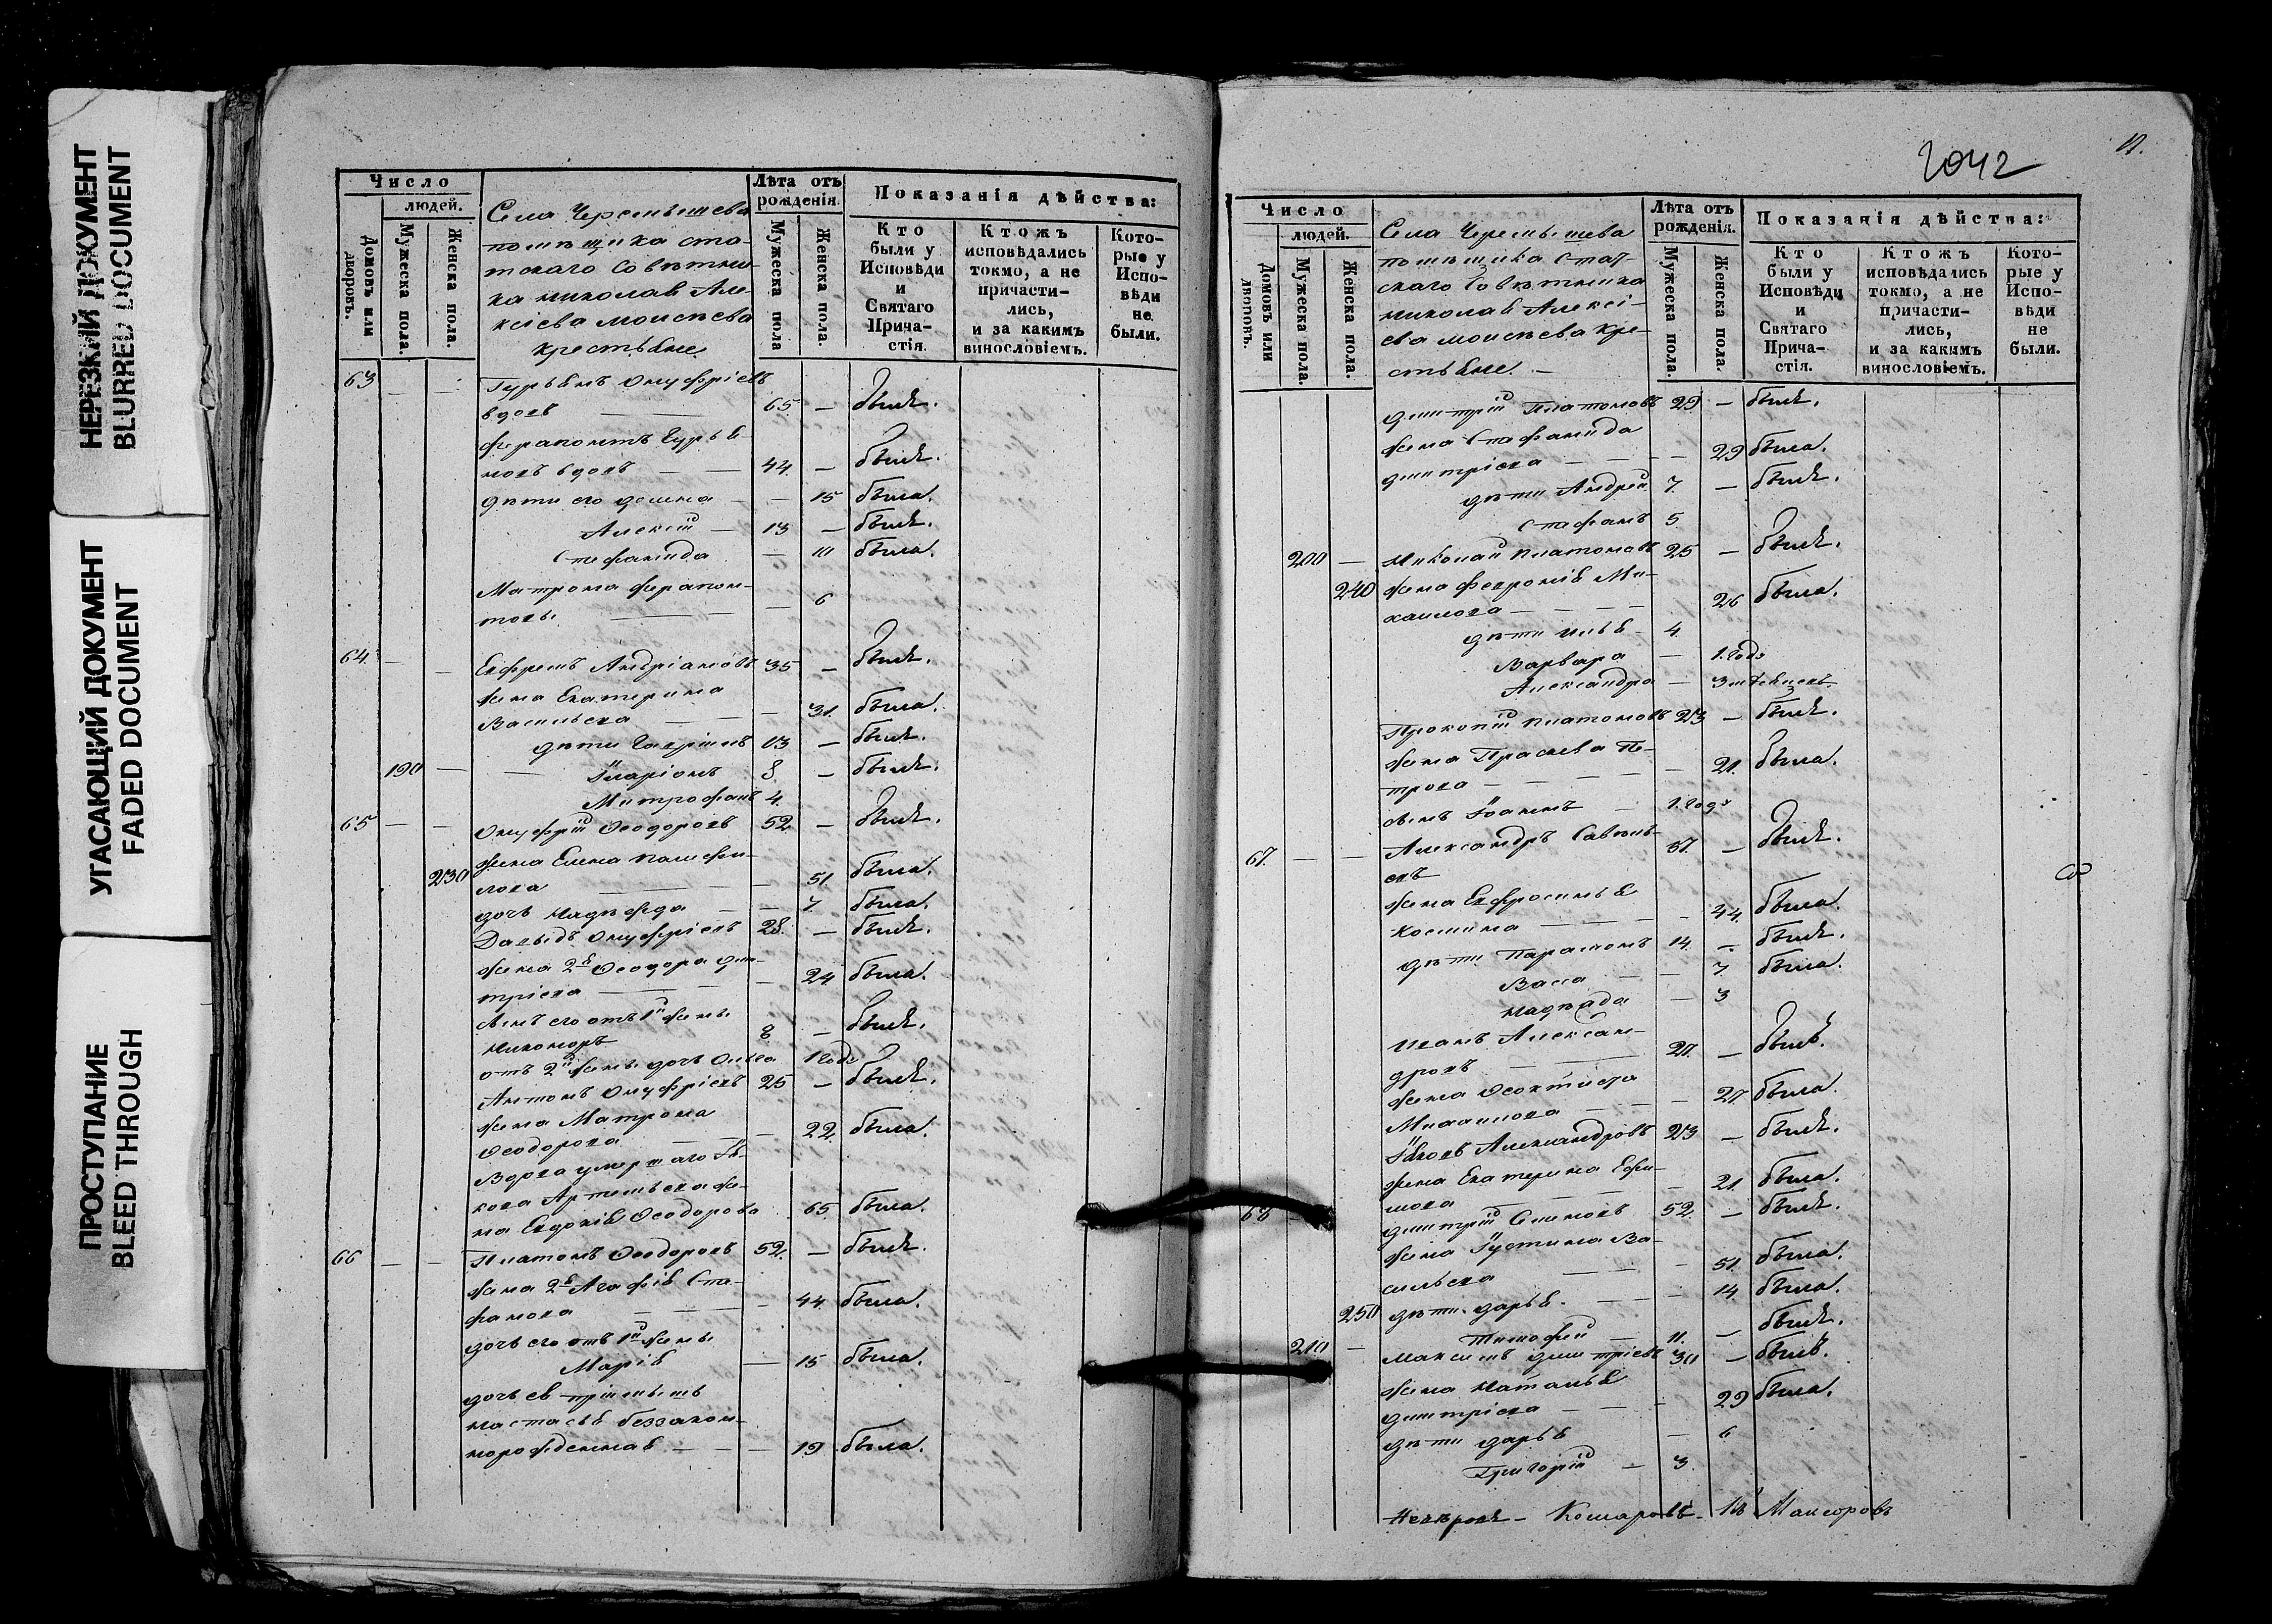 НЕРЕЗКИЙ ДОКУМЕНТ
BLURRED DOCUMENT
УГАСАЮЩИЙ ДОКУМЕНТ
FADED DOCUMENT
ПРОСТУПАНИЕ
BLEED THROUGH
Число
людей.
Домовъ или дворовъ.
Мужеска пола.
Женска пола.
Села Черемышева
помѣщика ста-
тскаго Совѣтни-
ка николая Але-
ксіева моисѣева
крестьяне
Лѣта отъ рожденія.
Мужеска пола
Женска пола.
Показанія дѣйства:
Кто были у Исповѣди и Святаго Прича-стія.
Ктожъ исповѣдались токмо, а не причасти-лись, и за какимъ винословіемъ.
Кото-рые у Испо-вѣди не были.
63 — — Гурьянъ Онуфріевъ
вдовъ — 65 — былъ.
Ферапонтъ Гурья-
новъ вдовъ — — 44 — былъ.
дѣти его — — 15 была.
Алексій — 13 — былъ.
Стефанида — 10 была.
Матрона Ферапон-
товы — — 6
64 — — Ефремъ Андріановъ 35 — былъ.
жена Екатерина
Васильева — — — 31. была.
дѣти Гавріилъ 13 — былъ.
190 — — Іларіонъ 8 — былъ.
Митрофанъ 4.
65 — — Онуфрій Ѳеодоровъ 52 — былъ.
230 жена Елена Памфи-
лова — — 51 была.
дочь Надежда — — 7. была.
Давыдъ Онуфріевъ 28. — былъ.
жена 2я Ѳеодора дми-
тріева — — 24 была.
сынъ его отъ 1й жены
Никоноръ 8 — былъ.
отъ 2й жены дочь Ольга 1 годъ
Антонъ Онуфріевъ 25 — былъ.
жена Матрона
Ѳеодорова — — — 22. была.
Вдова умершаго Іа-
кова Артемьева же-
на Евдокія Ѳеодорова 65 была.
66 — — Платонъ Ѳеодоровъ 52. — былъ.
жена 2я Агафія Сте-
фанова — — — 44. была.
дочь его отъ 1й жены
Марія — 15 была.
дочь ея пріемышъ
настасья беззакон-
норожденная — — — 19 была.
2042
Число
людей.
Домовъ или дворовъ.
Мужеска пола.
Женска пола.
Села Черемышева
помѣщика стат-
скаго Совѣтника
николая Алексі-
ева моисѣева кре-
стьяне. —
Лѣта отъ рожденія.
Мужеска пола.
Женска пола.
Показанія дѣйства:
Кто были у Исповѣди и Святаго Прича-стія.
Ктожъ исповѣдались токмо, а не причасти-лись, и за какимъ винословіемъ.
Кото-рые у Испо-вѣди не были.
дмитрій Платоновъ 29 — былъ.
жена Стефанида
дмитріева — — — 29 была.
дѣти Андрей 7. — былъ.
Стефанъ 5
200 — Николай Платоновъ 25 — былъ.
240 жена Февронія Ми-
хаилова — — — 26 была.
дѣти Илья — 4.
Варвара — 1. годъ
Александра — 3 мѣсяцевъ.
Прокопій Платоновъ 23 — былъ.
жена Праскева Пе-
трова — — — — 21. была.
сынъ Іоаннъ — 1. годъ
67. — — Александръ Савель-
евъ 57. — былъ.
жена Евфросинья
Космина — — — 44. была.
дѣти Парамонъ 14. — былъ.
Васса — — 7. была.
— 3
Иванъ Алексан-
дровъ — 27. — былъ.
жена Ѳеоктиста
Михаилова — — — 27. была.
Іаковъ Александровъ 23 — былъ.
жена Екатерина Ефи-
мова — — — 21. была.
68 — дмитрій Семеновъ 52. — былъ.
жена Іустина Ва-
сильева — — 51. была.
250 дѣти дарья. — — — 14. была.
Тимофей — 11. — былъ.
210 — Максимъ дмитріевъ 30 — былъ.
жена Наталья
дмитріева — — — 29 была.
дѣти дарья — 6
Григорій — 3.